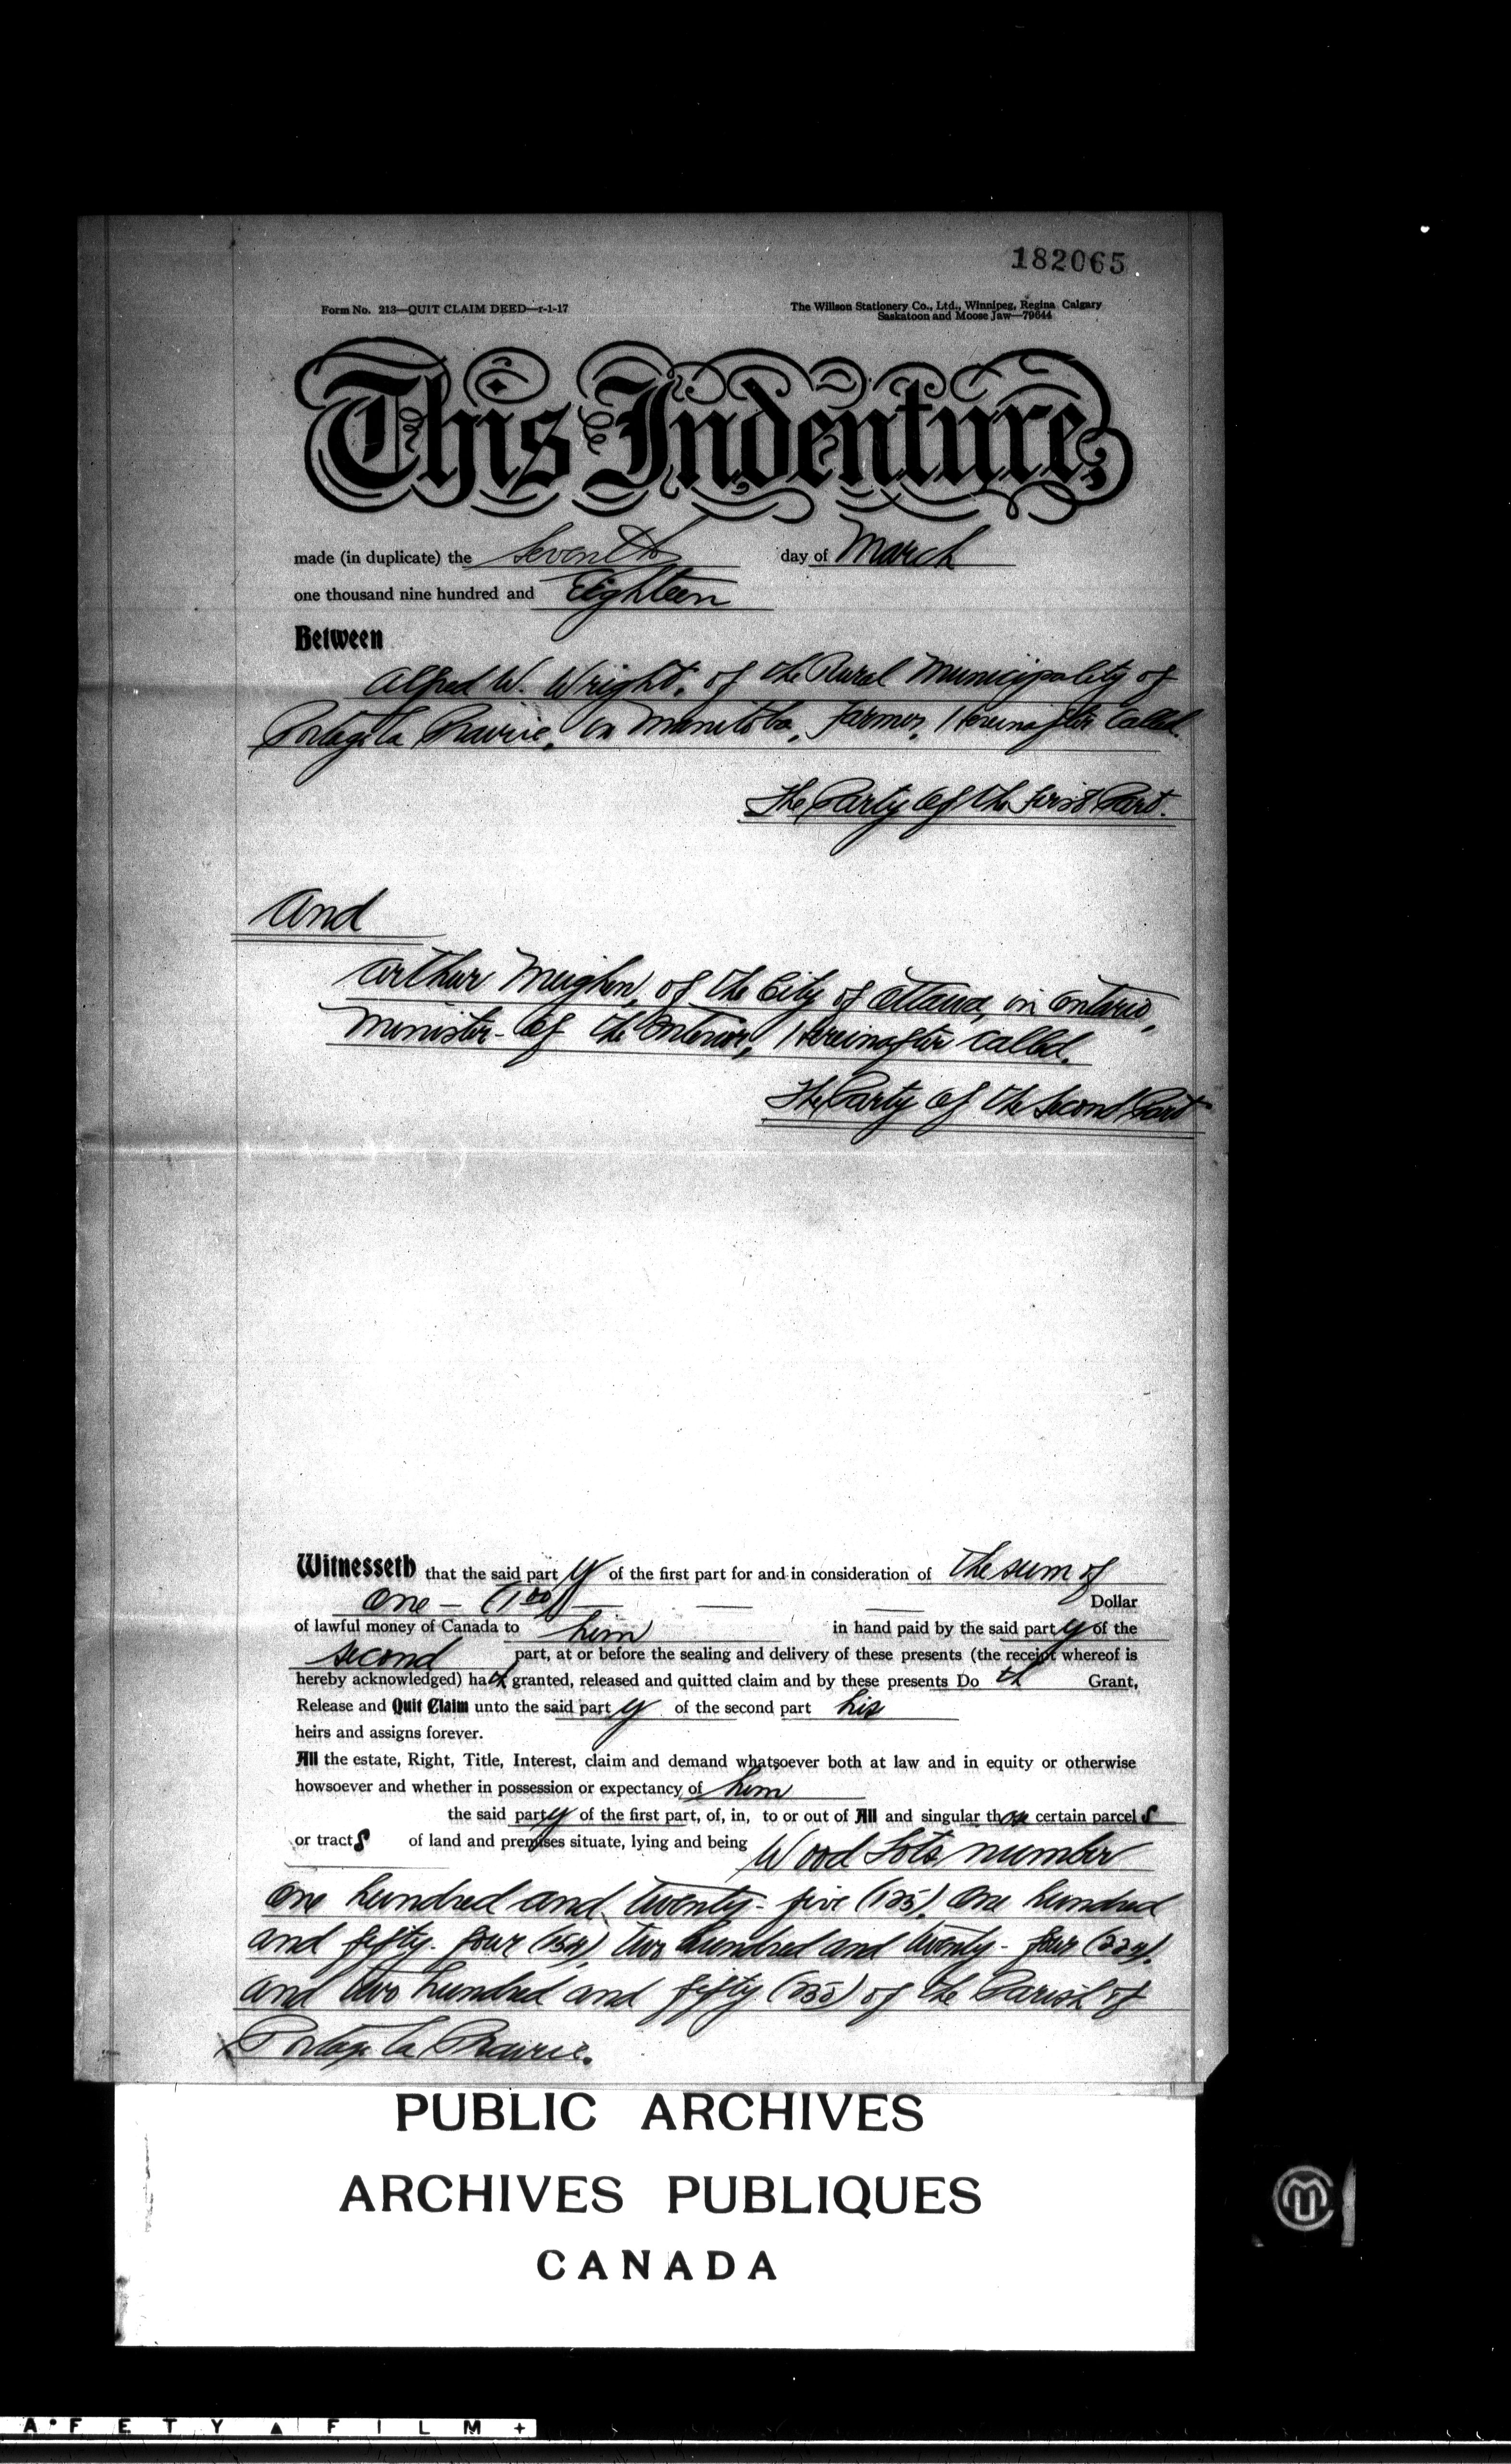 182065
Form No. 213—QUIT CLAIM DEED—r-1-17
The Willson Stationery Co., Ltd., Winnipeg, Regina Calgary
Saskatoon and Moose Jaw—79644
This Indenture
made (in duplicate) the seventh day of March
one thousand nine hundred and Eighteen
Between
Alfred W. Wright, of the Rural Municipality of
Portage la Prairie, in Manitoba, Farmer, Hereinafter Called.
The Party of the First Part.
And
Arthur Meighen, of the City of Ottawa, in Ontario,
Minister of the Interior, Hereinafter Called.
The Party of the Second Part
Witnesseth that the said party of the first part for and in consideration of the sum of
One — (1.00) — — — Dollar
of lawful money of Canada to him in hand paid by the said party of the
second part, at or before the sealing and delivery of these presents (the receipt whereof is
hereby acknowledged) hath granted, released and quitted claim and by these presents Doth Grant,
Release and Quit Claim unto the said party of the second part his
heirs and assigns forever.
All the estate, Right, Title, Interest, claim and demand whatsoever both at law and in equity or otherwise
howsoever and whether in possession or expectancy of him
the said party of the first part, of, in, to or out of All and singular those certain parcels
or tracts of land and premises situate, lying and being Wood Lots number
One hundred and twenty-five (125), One hundred
and fifty-four (154), two hundred and twenty-four (224),
and two hundred and fifty (250) of the Parish of
Portage la Prairie.
PUBLIC ARCHIVES
ARCHIVES PUBLIQUES
CANADA
AFETY ▲ FILM +